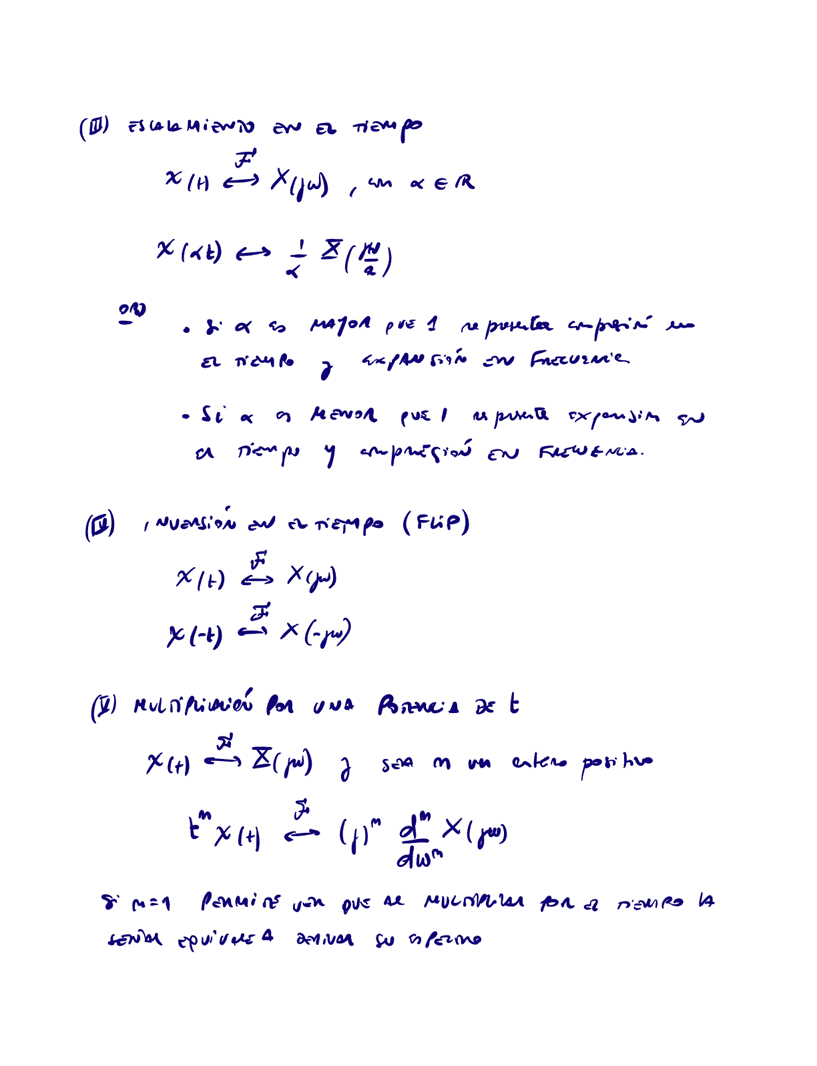 (III) ESCALAMIENTO EN EL TIEMPO
x(t) ⟷ℱ X(jω) , con α ∈ ℝ
x(αt) ⟷ 1/α X(jω/α)
OBS
• Si α es MAYOR que 1 representa compresión en
EL TIEMPO y EXPANSIÓN EN FRECUENCIA
• Si α es MENOR que 1 representa expansión en
el Tiempo y compresión EN FRECUENCIA.
(IV) INVERSIÓN EN EL TIEMPO (FLIP)
x(t) ⟷ℱ X(jω)
x(-t) ⟷ℱ X(-jω)
(V) MULTIPLICACIÓN POR UNA POTENCIA DE t
x(t) ⟷ℱ X(jω) y SEA n un entero positivo
tⁿ x(t) ⟷ℱ (j)ⁿ dⁿ/dωⁿ X(jω)
Si n=1 PERMITE VER QUE AL MULTIPLICAR POR EL TIEMPO LA
SEÑAL EQUIVALE A DERIVAR SU ESPECTRO